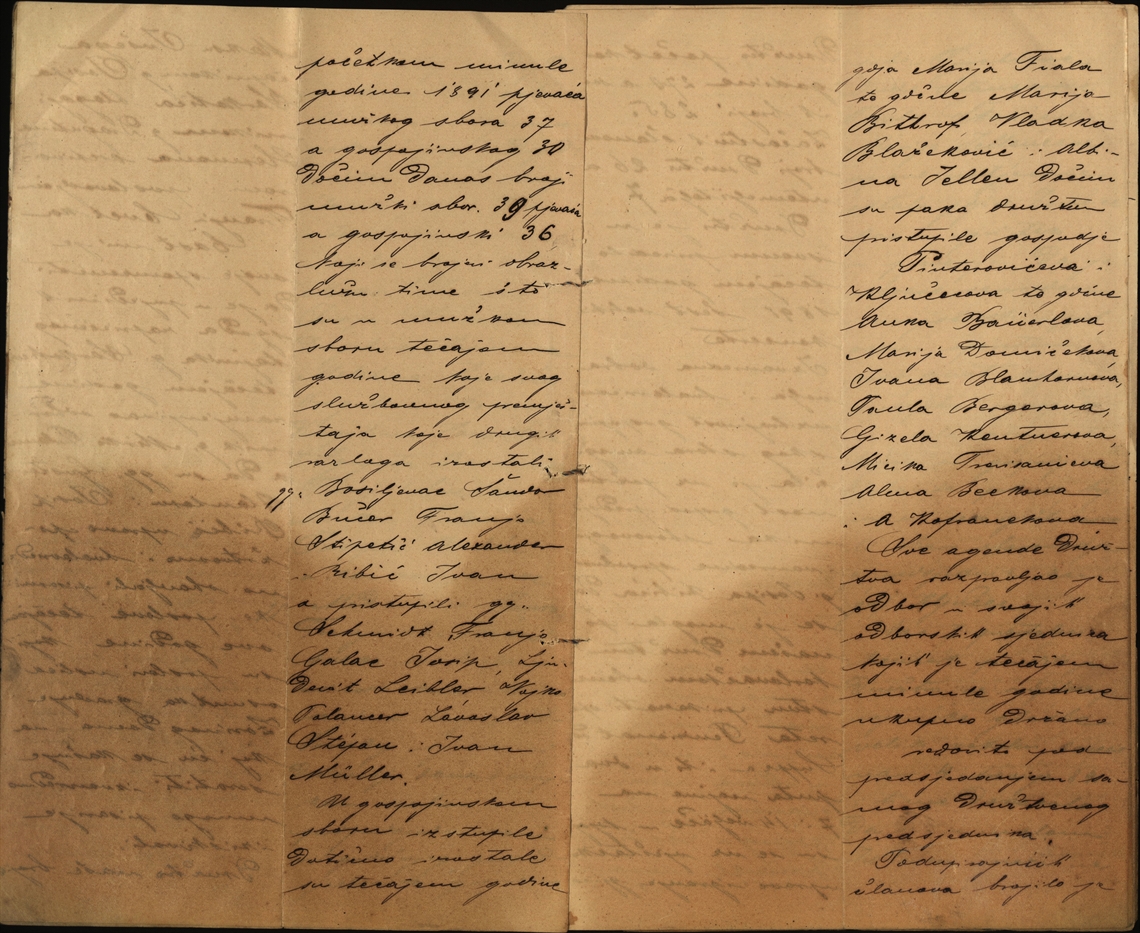 početkom minule
godine 1891 pjevača
mužkog sbora 37
a gospojinskog 30
Dočim danas broji
mužki sbor. 39 pjevača
a gospojinski 36
koji se brojni obraz-
luže time što
su u mužkom
sboru tečajem
godine koje svog
službovnog premješ-
taja koje drugih
razloga izostali
gg. Bosiljevac Šandor
Bučer Franjo
Stipetić Alexander
i Ribić Ivan
a pristupili gg.
Schmidt Franjo,
Galac Josip, Lju-
devit Leibler, Vojko
Polancer Lavoslav
Stéjan i Ivan
Müller.
U gospojinskom
sboru izstupile
dotično izostale
su tečajem godine
gdja Marija Fiala
te gdčne Marija
Bitthrof, Vladka
Blažeković i Albi-
na Jellen Dočim
su paka družtvu
pristupile gospodje
Pinterovićeva i
Ključecova te gdčne
Anka Bäuerlova,
Marija Domižekova,
Ivana
Paula Bergerova,
Gizela
Micika
Alma Beckova
i A Hofranekova
Sve agende Druž-
tva razpravljao je
odbor u svojih
odborskih sjednica
kojih je tečajem
minule godine
ukupno držano
redovito pod
predsjedanjem sa-
mog Družtvenog
predsjednika.
Podupirajućih
članova brojilo je